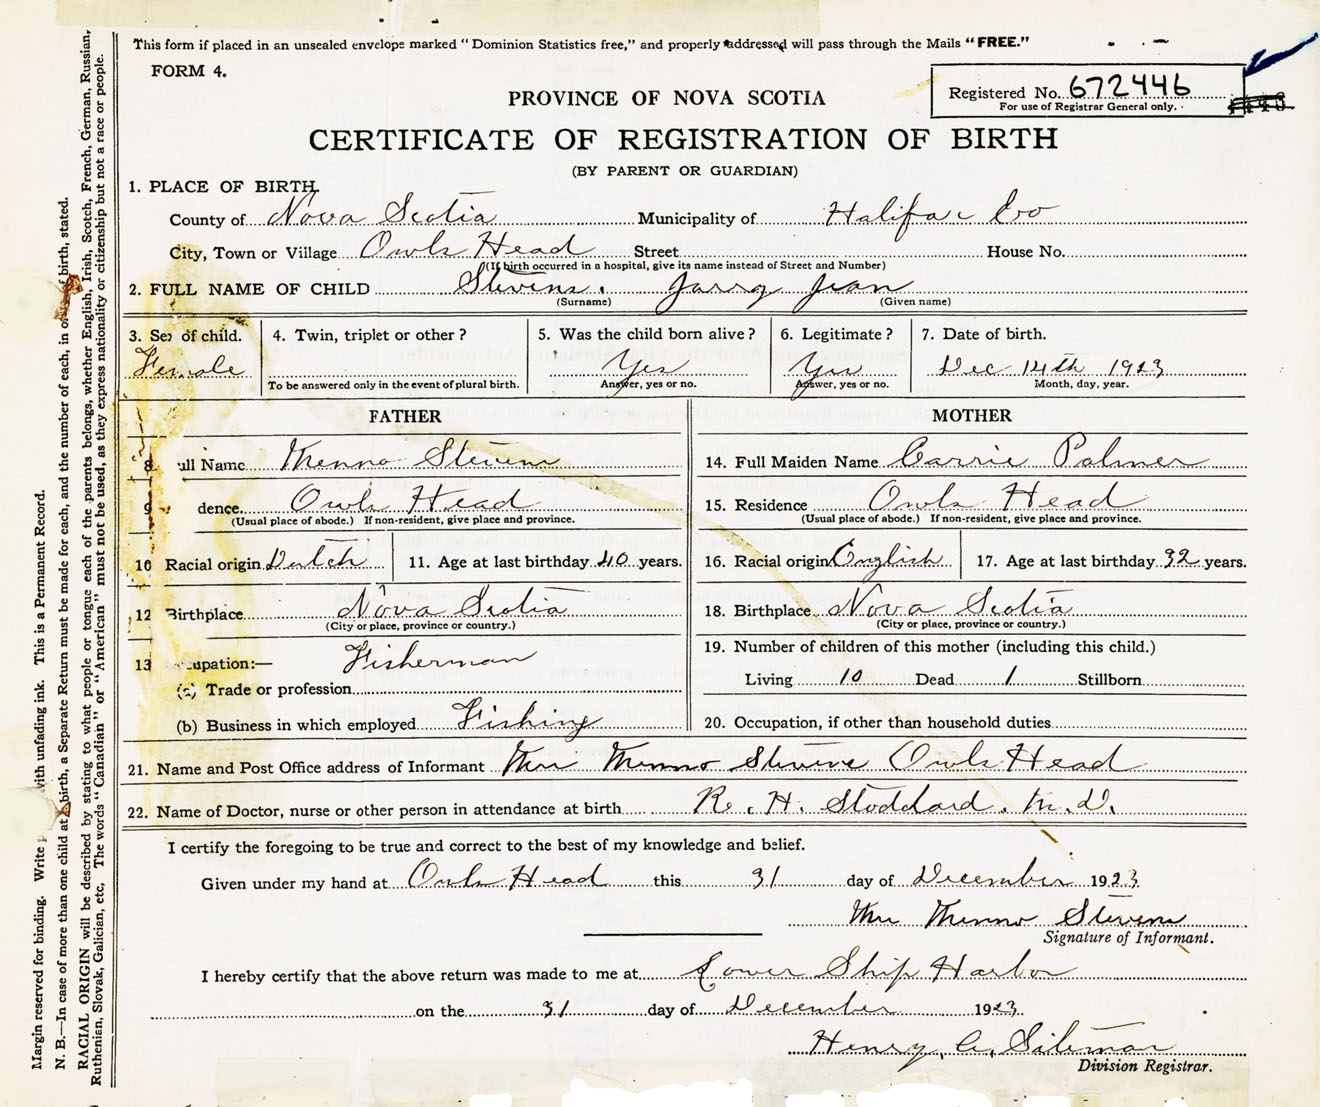 This form if placed in an unsealed envelope marked "Dominion Statistics free," and properly addressed will pass through the Mails "FREE."
FORM 4.
Registered No. 672446
For use of Registrar General only.
PROVINCE OF NOVA SCOTIA
CERTIFICATE OF REGISTRATION OF BIRTH
(BY PARENT OR GUARDIAN)
1. PLACE OF BIRTH.
County of Nova Scotia Municipality of Halifax Co
City, Town or Village Owls Head Street House No.
(If birth occurred in a hospital, give its name instead of Street and Number)
2. FULL NAME OF CHILD Stevens. Jean
(Surname) (Given name)
3. Sex of child. 4. Twin, triplet or other? 5. Was the child born alive? 6. Legitimate? 7. Date of birth.
Female Yes Yes Dec 14th 1923
To be answered only in the event of plural birth. Answer, yes or no. Answer, yes or no. Month, day, year.
FATHER MOTHER
8 ull Name Menno Stevens 14. Full Maiden Name Carrie Palmer
9 dence. Owls Head 15. Residence Owls Head
(Usual place of abode.) If non-resident, give place and province. (Usual place of abode.) If non-resident, give place and province.
10 Racial origin Dutch 11. Age at last birthday 40 years. 16. Racial origin English 17. Age at last birthday 32 years.
12 Birthplace Nova Scotia 18. Birthplace Nova Scotia
(City or place, province or country.) (City or place, province or country.)
13 upation:— Fisherman 19. Number of children of this mother (including this child.)
(a) Trade or profession Living 10 Dead 1 Stillborn
(b) Business in which employed Fishing 20. Occupation, if other than household duties
21. Name and Post Office address of Informant Mrs Menno Stevens Owls Head
22. Name of Doctor, nurse or other person in attendance at birth R. H. Stoddard. M.D.
I certify the foregoing to be true and correct to the best of my knowledge and belief.
Given under my hand at Owls Head this 31 day of December 1923.
Mrs Menno Stevens
Signature of Informant.
I hereby certify that the above return was made to me at Lower Ship Harbor
on the 31 day of December 1923
Henry A. Siteman
Division Registrar.
Margin reserved for binding. Write with unfading ink. This is a Permanent Record.
N. B.—In case of more than one child at a birth, a Separate Return must be made for each, and the number of each, in order of birth, stated.
RACIAL ORIGIN will be described by stating to what people or tongue each of the parents belongs, whether English, Irish, Scotch, French, German, Russian,
Ruthenian, Slovak, Galician, etc, The words "Canadian" or "American" must not be used, as they express nationality or citizenship but not a race or people.